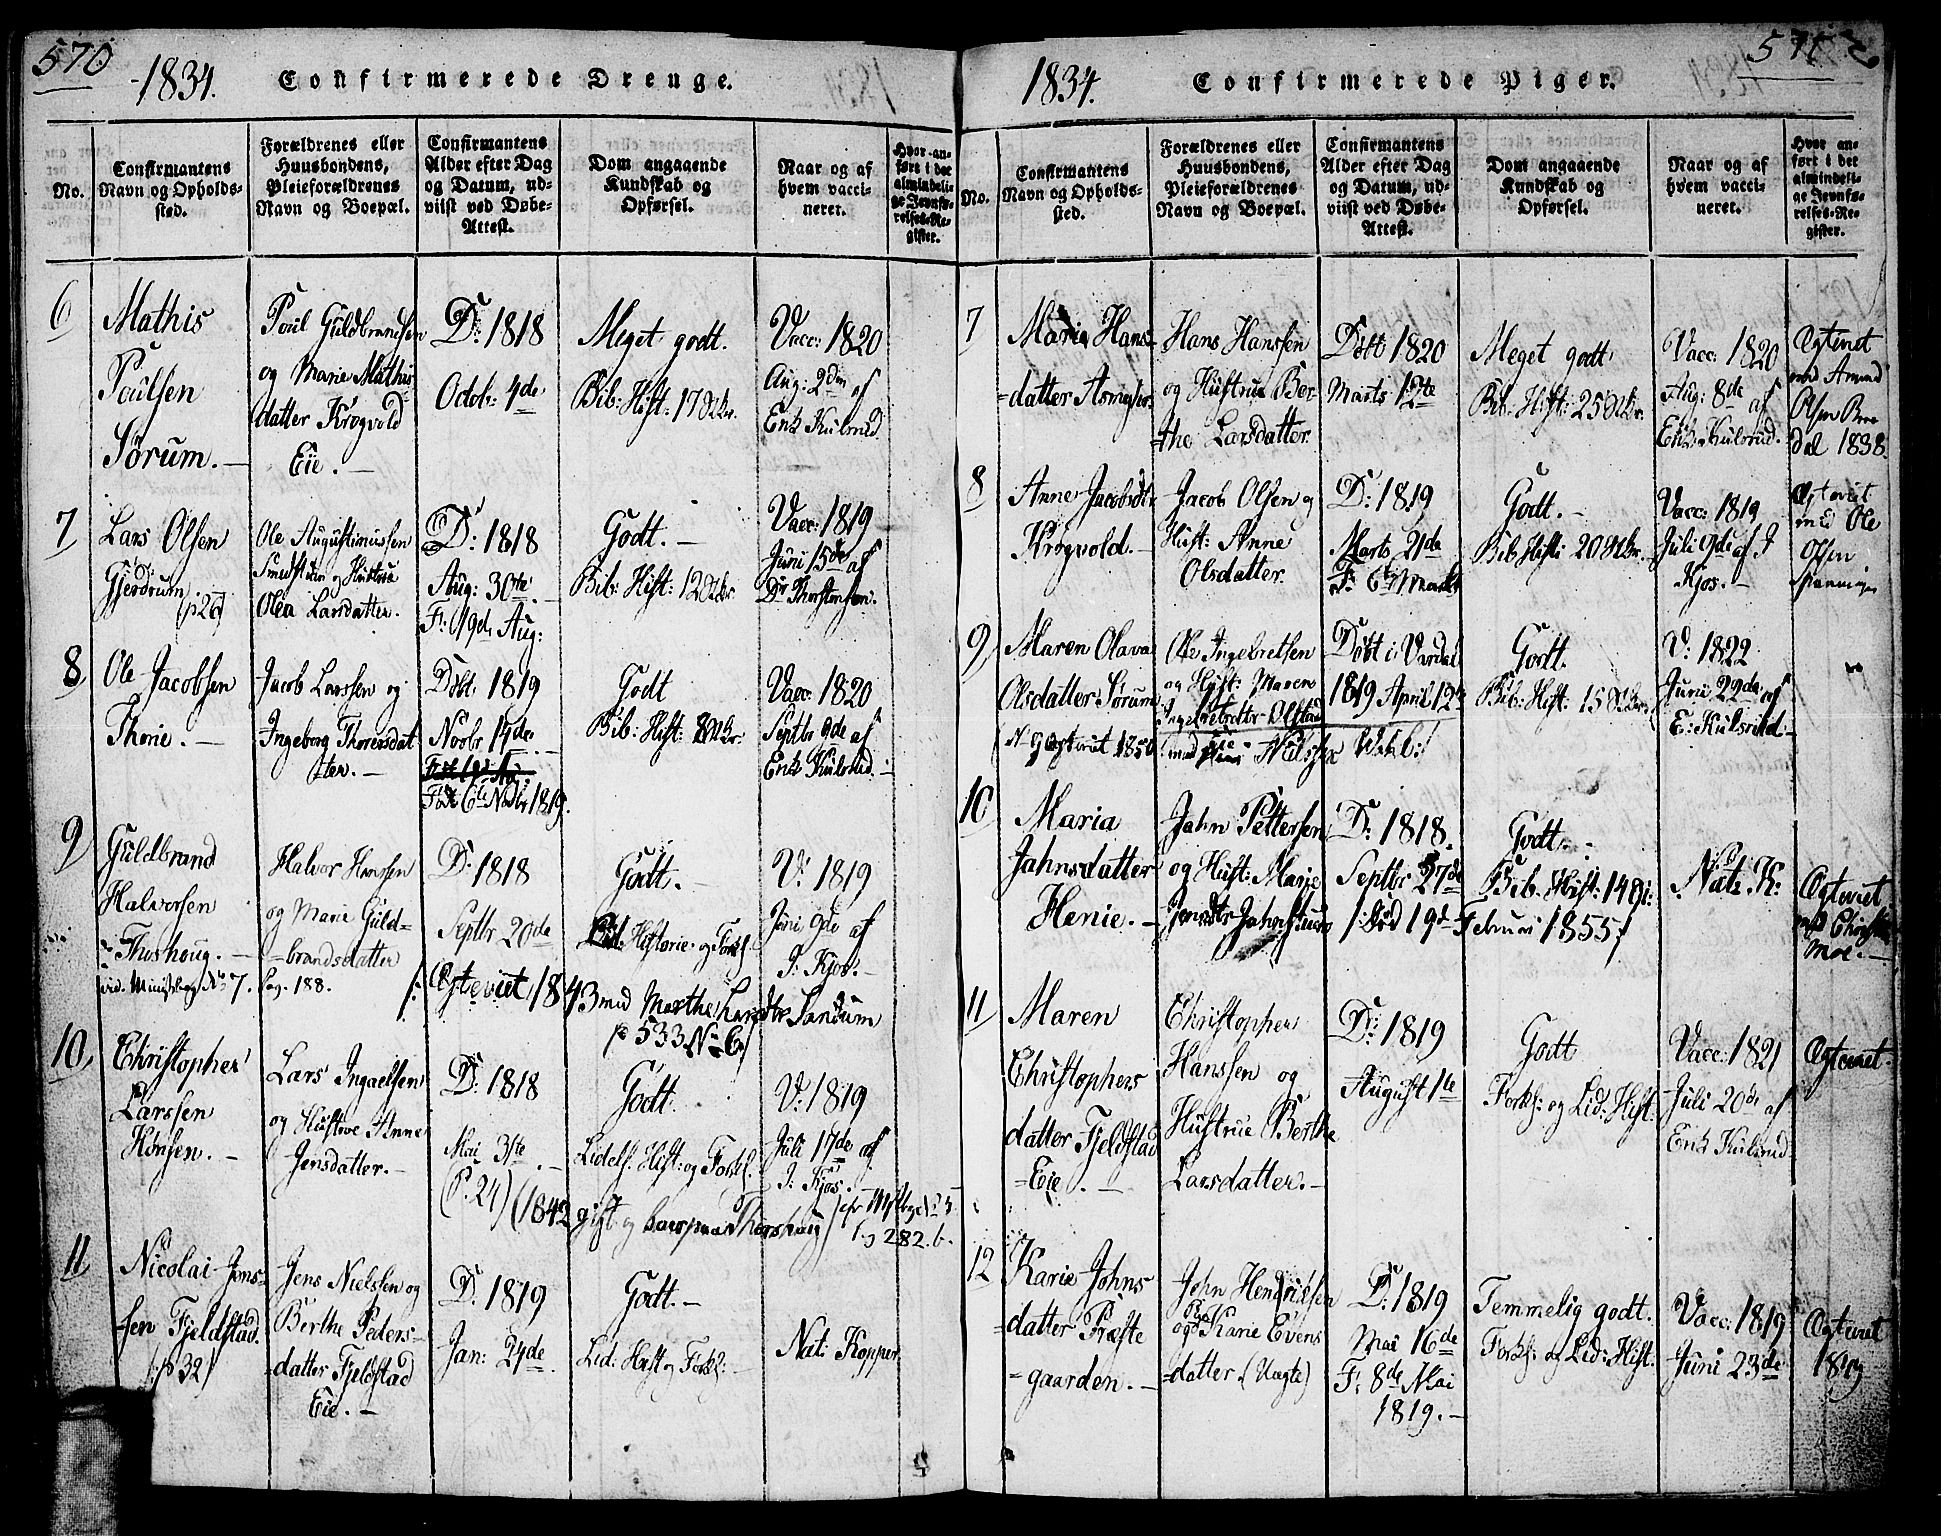 570
1834. Confirmerede Drenge.
No.
Confirmantens Navn og Opholdssted.
Forældrenes eller Huusbondens, Pleieforældrenes Navn og Boepæl.
Confirmantens Alder efter Dag og Datum, udviist ved Døbe-Attest.
Dom angaaende Kundskab og Opførsel.
Naar og af hvem vaccineret.
Hvor anført i det almindelige Jevnførelses-Register.
6
Mathis
Poulsen
Sørum.
Poul Guldbrandsen
og Marie Mathis-
datter Krogvold
Eie.
D: 1818
Octobr: 4de
Meget godt.
Bib: Hist: 17 Skr.
Vacc: 1820
Aug: 2den af
Erik Kulsrud
7
Lars Olsen
Gjerdrum
(p 26)
Ole Augustinussen
Smedstuen og Hustrue
Olea Larsdatter.
D: 1818
Aug: 30te
F: 19de Aug:
Godt.
Bib: Hist: 12 Skr.
Vacc: 1819
Juni 15de af
Dr Thorstensen.
8
Ole Jacobsen
Thorie.
Jacob Larssen og
Ingeborg Thoresdat
ter.
Døbt 1819
Novbr 14de
Født 6te Novbr 1819.
Godt
Bib: Hist: 8 Skr.
Vacc: 1820
Septbr 9de af
Erik Kulsrud.
9
Guldbrand
Halvorsen
Thoshoug.
vid. Ministbog No 7. Pag. 188.
Halvor Hanssen
og Marie Guld-
brandsdatter
D: 1818
Septbr 20de
Godt.
Lid: Historie og Forkl:
V: 1819
Juni 9de af
I: Kjos.
/: Egteviet 1843 med Marthe Larsdtr Sandum
p 533 No 6
10
Christopher
Larssen
Hønsen.
Lars Ingaelsen
og Hustrue Anne
Jensdatter.
D: 1818
Mai 3die
(P. 24) (1842 gift og
Godt.
Lidels: Hist: og Forkl:
V: 1819
Juli 17de af
I: Kjos.
282. b.
11
Nicolai Jens-
sen Fjeldstad.
/p 32/
Jens Nielsen og
Berthe Peders-
datter Fjeldstad
Eie.
D: 1819
Jan: 24de
Godt.
Lid: Hist og Forkl:
Nat: Kopper
1834. Confirmerede Piger.
No.
Confirmantens Navn og Opholdssted.
Forældrenes eller Huusbondens, Pleieforældrenes Navn og Boepæl.
Confirmantens Alder efter Dag og Datum, udviist ved Døbe-Attest.
Dom angaaende Kundskab og Opførsel.
Naar og af hvem vaccineret.
Hvor anført i det almindelige Jevnførelses-Register.
7
Maria Hans-
datter
Hans Hanssen
og Hustrue Ber-
the Larsdatter
Døbt 1820
Marts 12te
Meget godt
Bib: Hist: 25 Skr.
Vacc: 1820
Aug: 8de af
Erik Kulsrud.
Egteviet
med Amund
Olsen
1838.
8
Anne Jacobsdtr
Krogvold.
Jacob Olsen og
Hust: Anne
Olsdatter.
D: 1819
Marts 21de
F: 6te Marts
Godt.
Bib: Hist: 20 Skr.
Vacc: 1819
Juli 9de af I
Kjos.
Egteviet
med Ole
Olsen
9
Maren Olava
Olsdatter Sørum
Ole Ingebretsen
og Hust: Maren
Ingebretsdtr
Eie
Døbt i Vardal
1819 April 12te
Godt.
Bib: Hist: 15 Skr.
V: 1822
Juni 22de af
E: Kulsrud.
Egteviet 1850 med
10
Maria
Jahnsdatter
Henie.
Jahn Pettersen
og Hust: Marie
D: 1818.
Septbr 27de
Godt.
Bib. Hist: 14 Skr:
Nat: K:
/: død 19de Februari 1855 :/
Egteviet
med
Moe.
11
Maren
Christophers
datter Fjeldstad
Eie.
Christopher
Hanssen og
Hustrue Berthe
Larsdatter.
D: 1819
August 1te
Godt
Forkl: og Lid: Hist.
Vacc: 1821
Juli 20de af
Erik Kulsrud
Egteviet
12
Karie Johns
datter Præste
gaarden.
John Hendriksen
og Karie Evens
datter (Uægte)
D: 1819
Mai 16de
F: 8de Mai
1819.
Temmelig godt.
Forkl: og Lid: Hist.
Vacc: 1819
Juni 23de
Egteviet